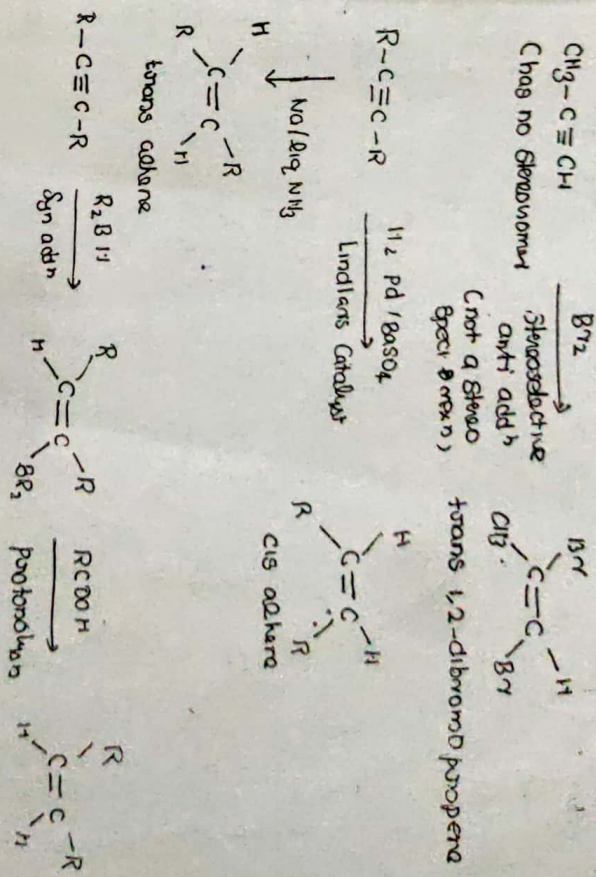 CH3-C≡CH
(has no stereoisomer
Br2
Stereoselective
anti addn
(not a stereo
Br
CH3
C=C
H
Br
trans 1,2-dibromo propene
R-C≡C-R
H2 Pd/BaSO4
Lindlars Catalyst
H
R
C=C
H
R
cis alkene
Na/liq NH3
H
R
C=C
R
H
trans alkene
R-C≡C-R
R2BH
Syn addn
R
H
C=C
R
BR2
RCOOH
protonolysis
R
H
C=C
R
H